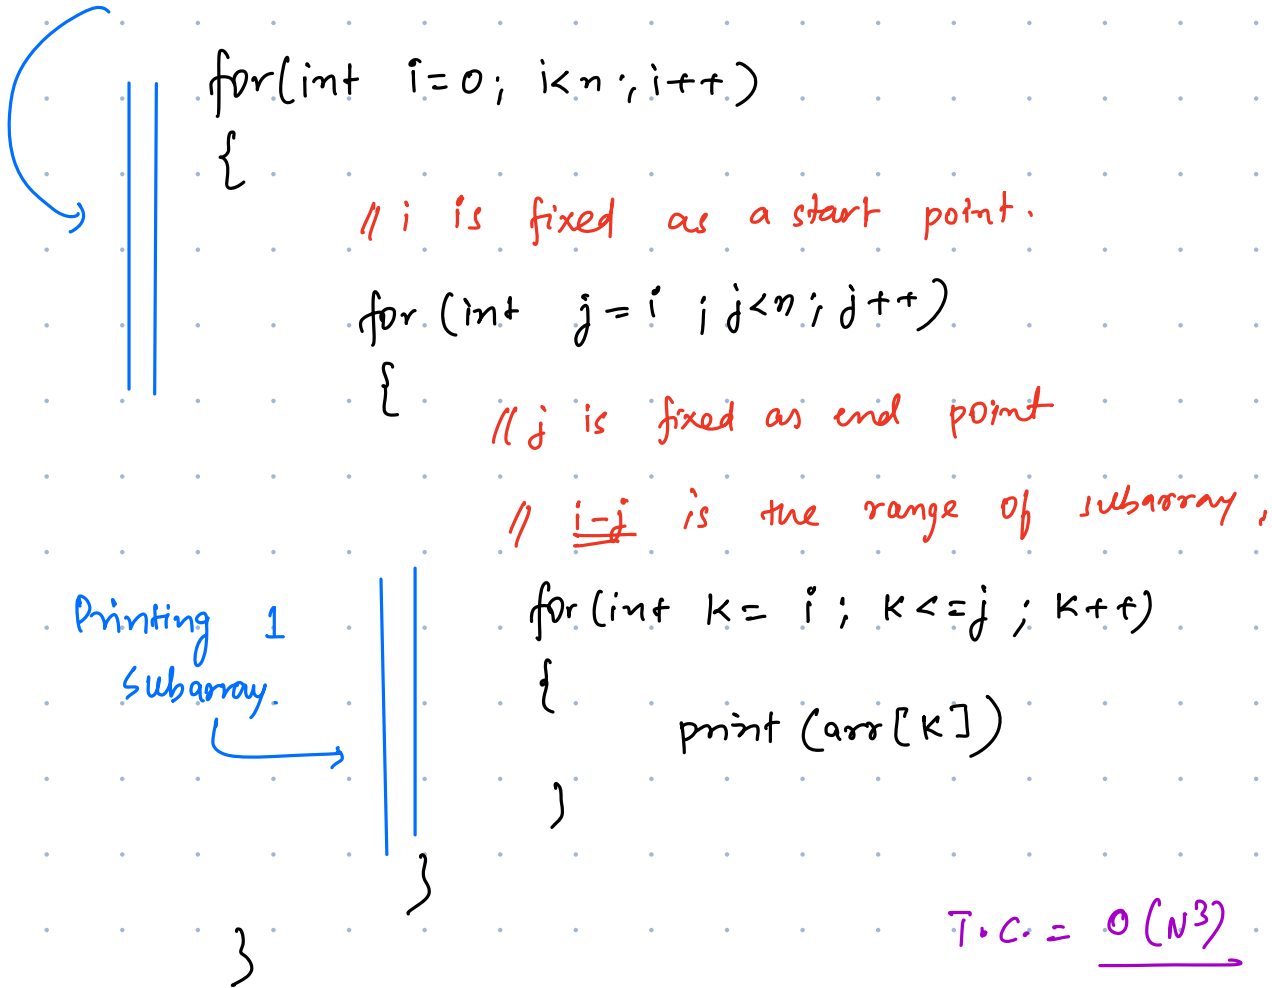 for(int i=0; i<n; i++)
{
// i is fixed as a start point.
for (int j=i ; j<n; j++)
{
// j is fixed as end point
// i-j is the range of subarray.
for(int k= i; k<=j; k++)
Printing 1
{
subarray.
print (arr[k])
}
}
T.C. = O(N³)
}